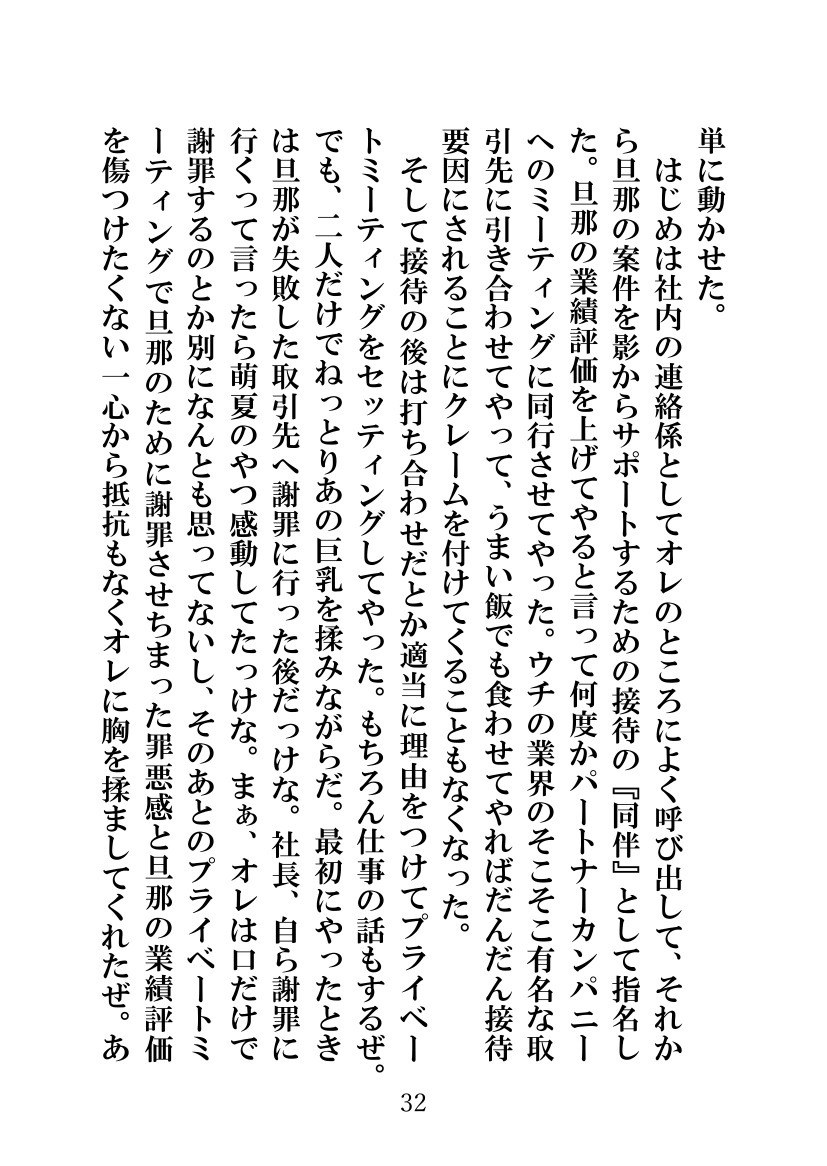 単に動かせた。
　はじめは社内の連絡係としてオレのところによく呼び出して、それか
ら旦那の案件を影からサポートするための接待の『同伴』として指名し
た。旦那の業績評価を上げてやると言って何度かパートナーカンパニー
へのミーティングに同行させてやった。ウチの業界のそこそこ有名な取
引先に引き合わせてやって、うまい飯でも食わせてやればだんだん接待
要因にされることにクレームを付けてくることもなくなった。
　そして接待の後は打ち合わせだとか適当に理由をつけてプライベー
トミーティングをセッティングしてやった。もちろん仕事の話もするぜ。
でも、二人だけでねっとりあの巨乳を揉みながらだ。最初にやったとき
は旦那が失敗した取引先へ謝罪に行った後だっけな。社長、自ら謝罪に
行くって言ったら萌夏のやつ感動してたっけな。まぁ、オレは口だけで
謝罪するのとか別になんとも思ってないし、そのあとのプライベートミ
ーティングで旦那のために謝罪させちまった罪悪感と旦那の業績評価
を傷つけたくない一心から抵抗もなくオレに胸を揉ましてくれたぜ。あ
32